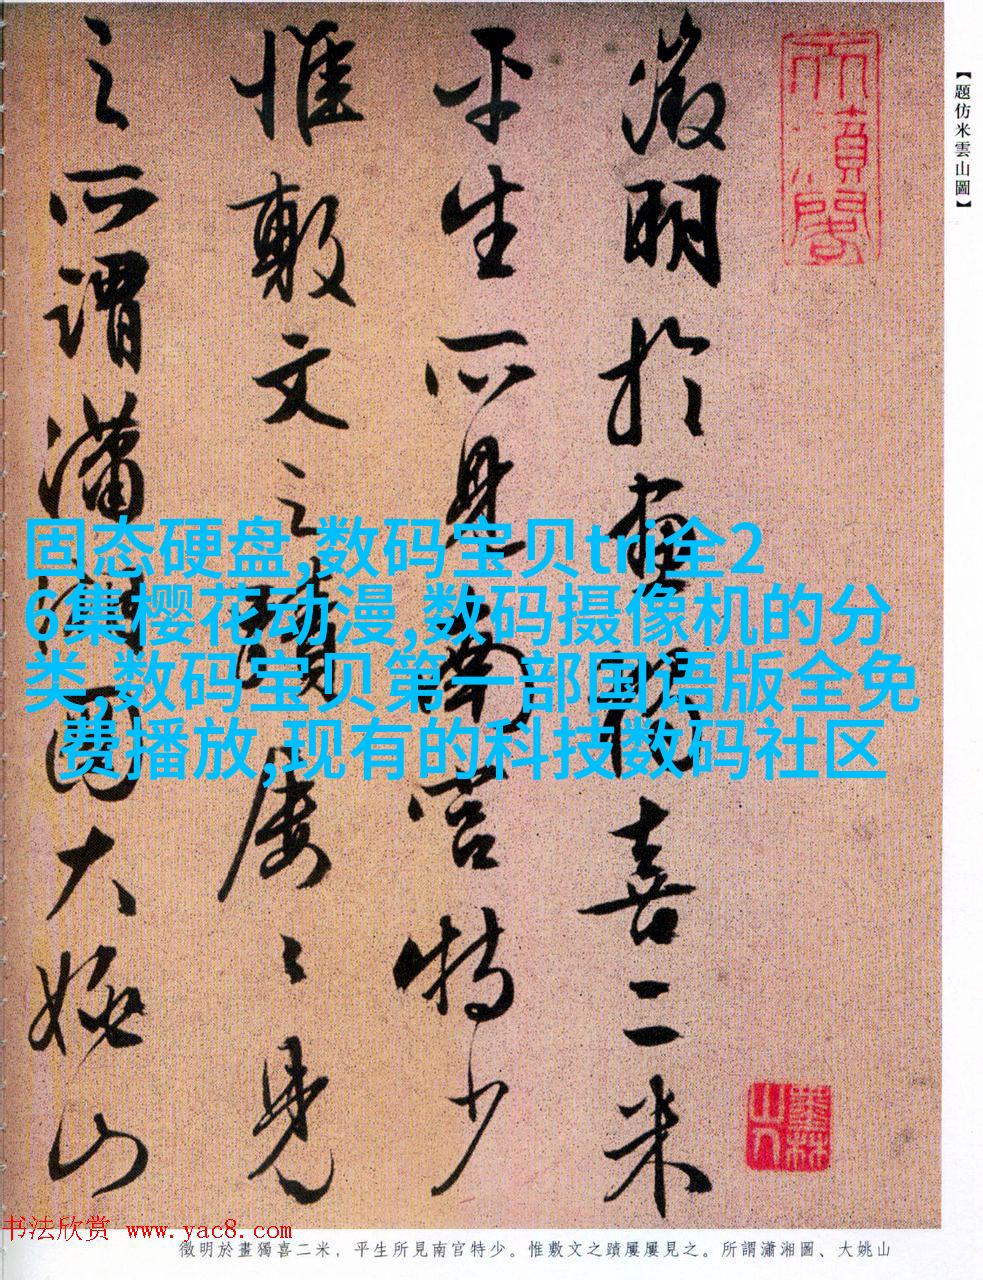 【題仿米雲山圖】
徵明於畫獨喜二米
平生所見南宮特少
惟敷文之蹟屢〻見
之所謂瀟湘圖大姚山
墨林
山人
固态硬盘,数码宝贝tri全2
6集樱花动漫,数码摄像机的分
类,数码宝贝第一部国语版全免
费播放,现有的科技数码社区
书法欣赏 www.yac8.com
徵明於畫獨喜二米，平生所見南官特少。惟敷文之蹟屢屢見之。所謂瀟湘圖、大姚山